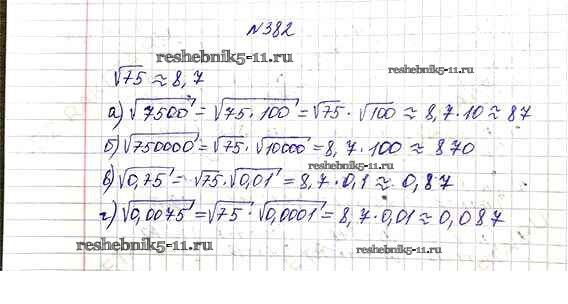 №382
reshebnik5-11.ru
√75 ≈ 8,7
а) √7500 = √75·100 = √75 · √100 ≈ 8,7·10 ≈ 87
б) √750000 = √75 · √10000 = 8,7·100 ≈ 870
reshebnik5-11.ru
в) √0,75 = √75 · √0,01 = 8,7·0,1 ≈ 0,87
г) √0,0075 = √75 · √0,0001 = 8,7·0,01 ≈ 0,087
reshebnik5-11.ru
reshebnik5-11.ru